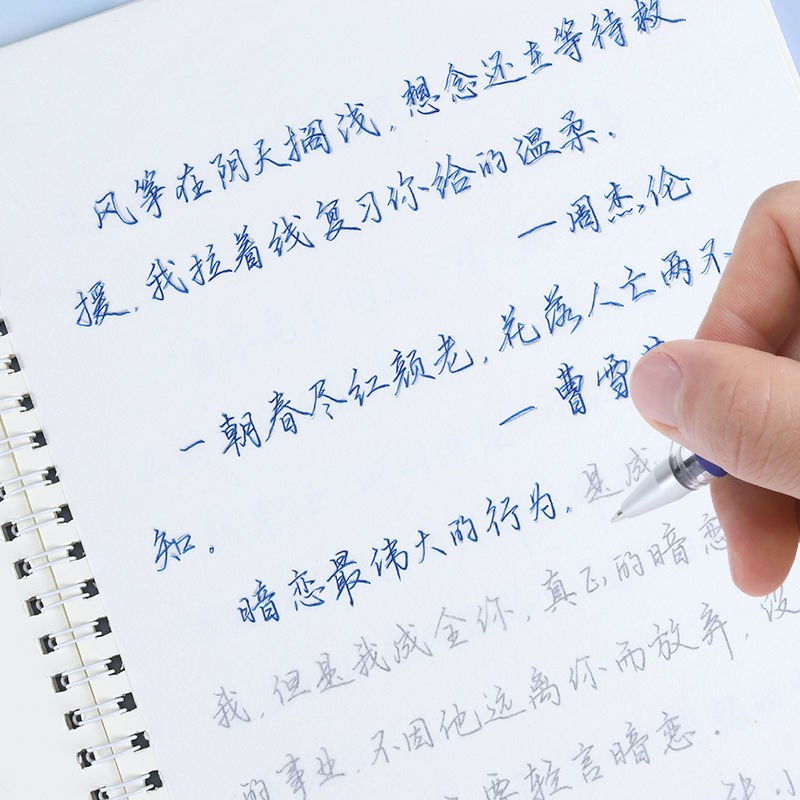 风筝在阴天搁浅,想念还在等待救
援,我拉着线复习你给的温柔.
一周杰伦
一朝春尽红颜老,花落人亡两不
知。 一曹雪
暗恋最伟大的行为,是成
我,但是我成全你,真正的暗恋
的事业,不因他远离你而放弃,没
要轻言暗恋.
小